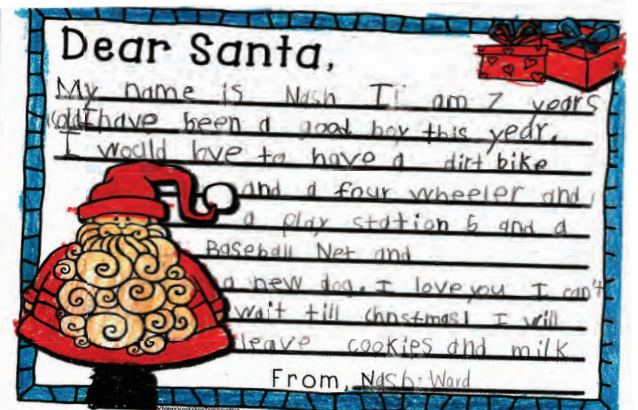 Dear Santa,
My name is Nash I am 7 years
old I have been a good boy this year.
I woald love to have a dirt bike
and a four wheeler and
a play station 5 and a
Baseball Net and
a new dog. I love you I can't
wait till christmas! I will
leave cookies and milk
From, Nash Ward